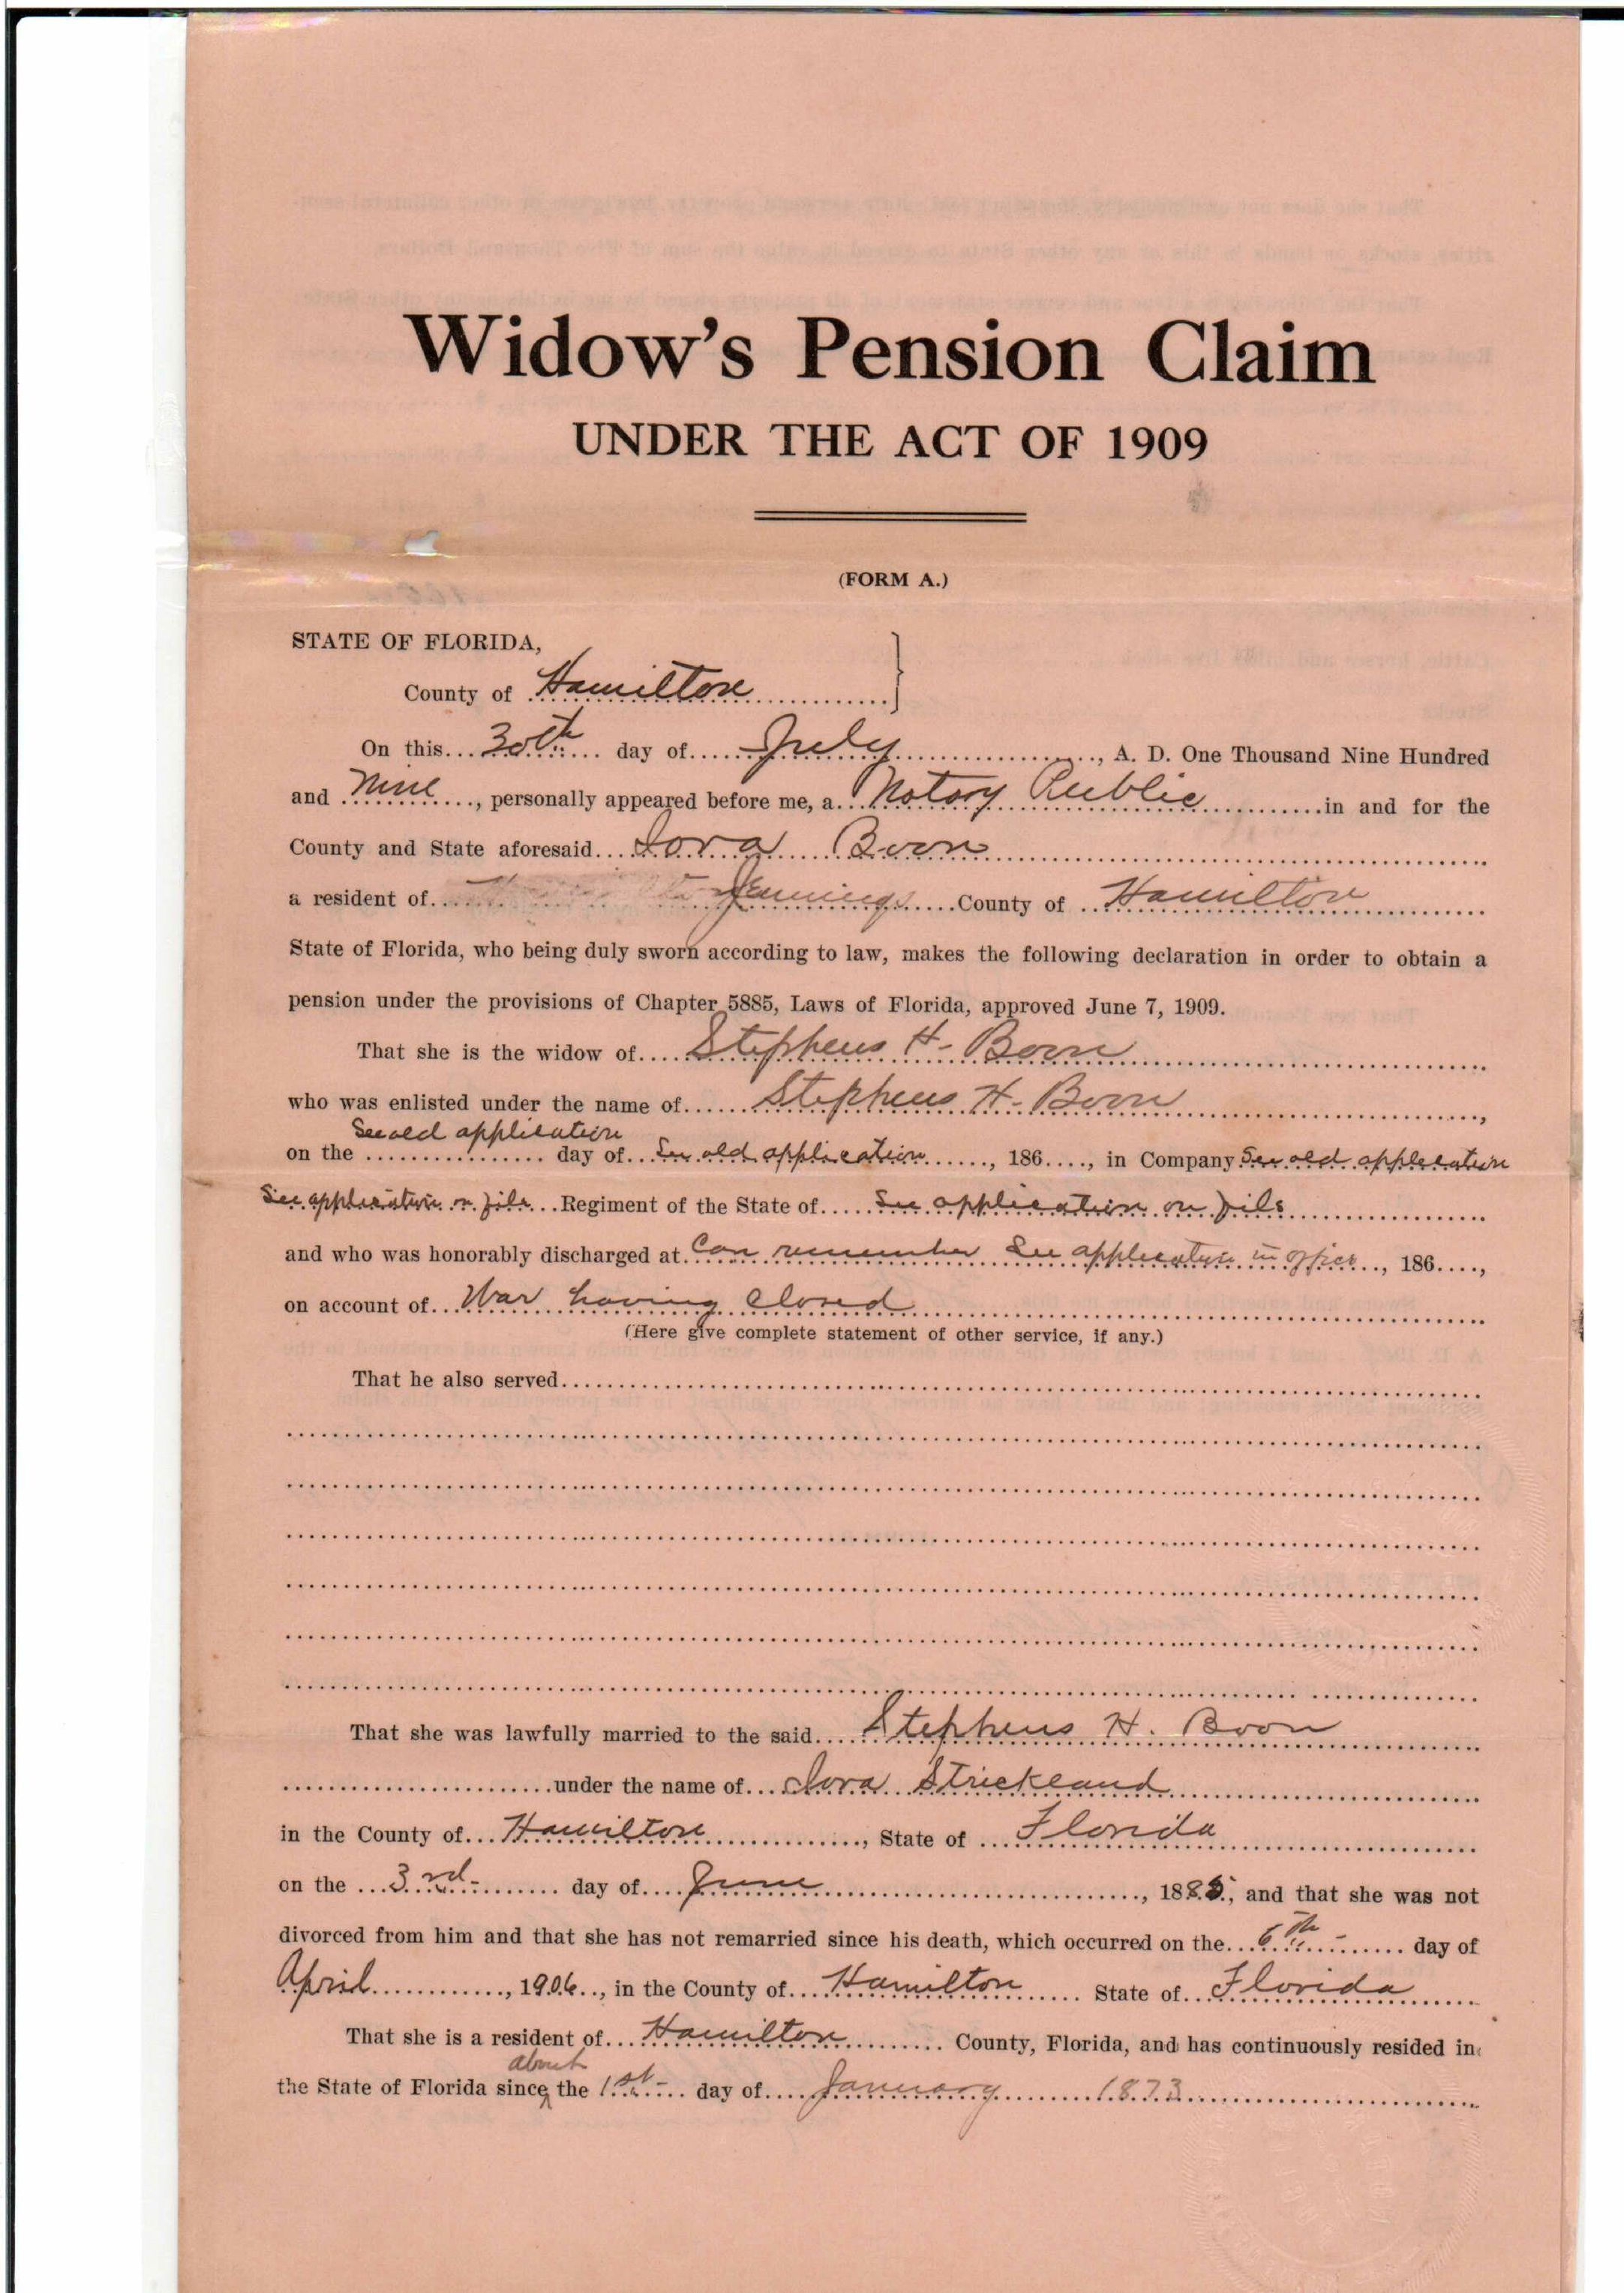 Widow's Pension Claim
UNDER THE ACT OF 1909
(FORM A.)
STATE OF FLORIDA,
County of Hamilton
On this 30th day of July, A. D. One Thousand Nine Hundred
and Nine, personally appeared before me, a Notary Public in and for the
County and State aforesaid Iora Boon
a resident of Jennings County of Hamilton
State of Florida, who being duly sworn according to law, makes the following declaration in order to obtain a
pension under the provisions of Chapter 5885, Laws of Florida, approved June 7, 1909.
That she is the widow of Stephens H. Boon
who was enlisted under the name of Stephens H. Boon,
See old application
on the day of See old application, 186, in Company See old application
See application on file Regiment of the State of See application on file
and who was honorably discharged at Can remember See application in office, 186,
on account of War having Closed
(Here give complete statement of other service, if any.)
That he also served
That she was lawfully married to the said Stephens H. Boon
under the name of Iora Strickland
in the County of Hamilton, State of Florida
on the 3rd day of June, 1885, and that she was not
divorced from him and that she has not remarried since his death, which occurred on the 6th day of
April, 1906, in the County of Hamilton State of Florida
That she is a resident of Hamilton County, Florida, and has continuously resided in
about
the State of Florida since the 1st day of January 1873